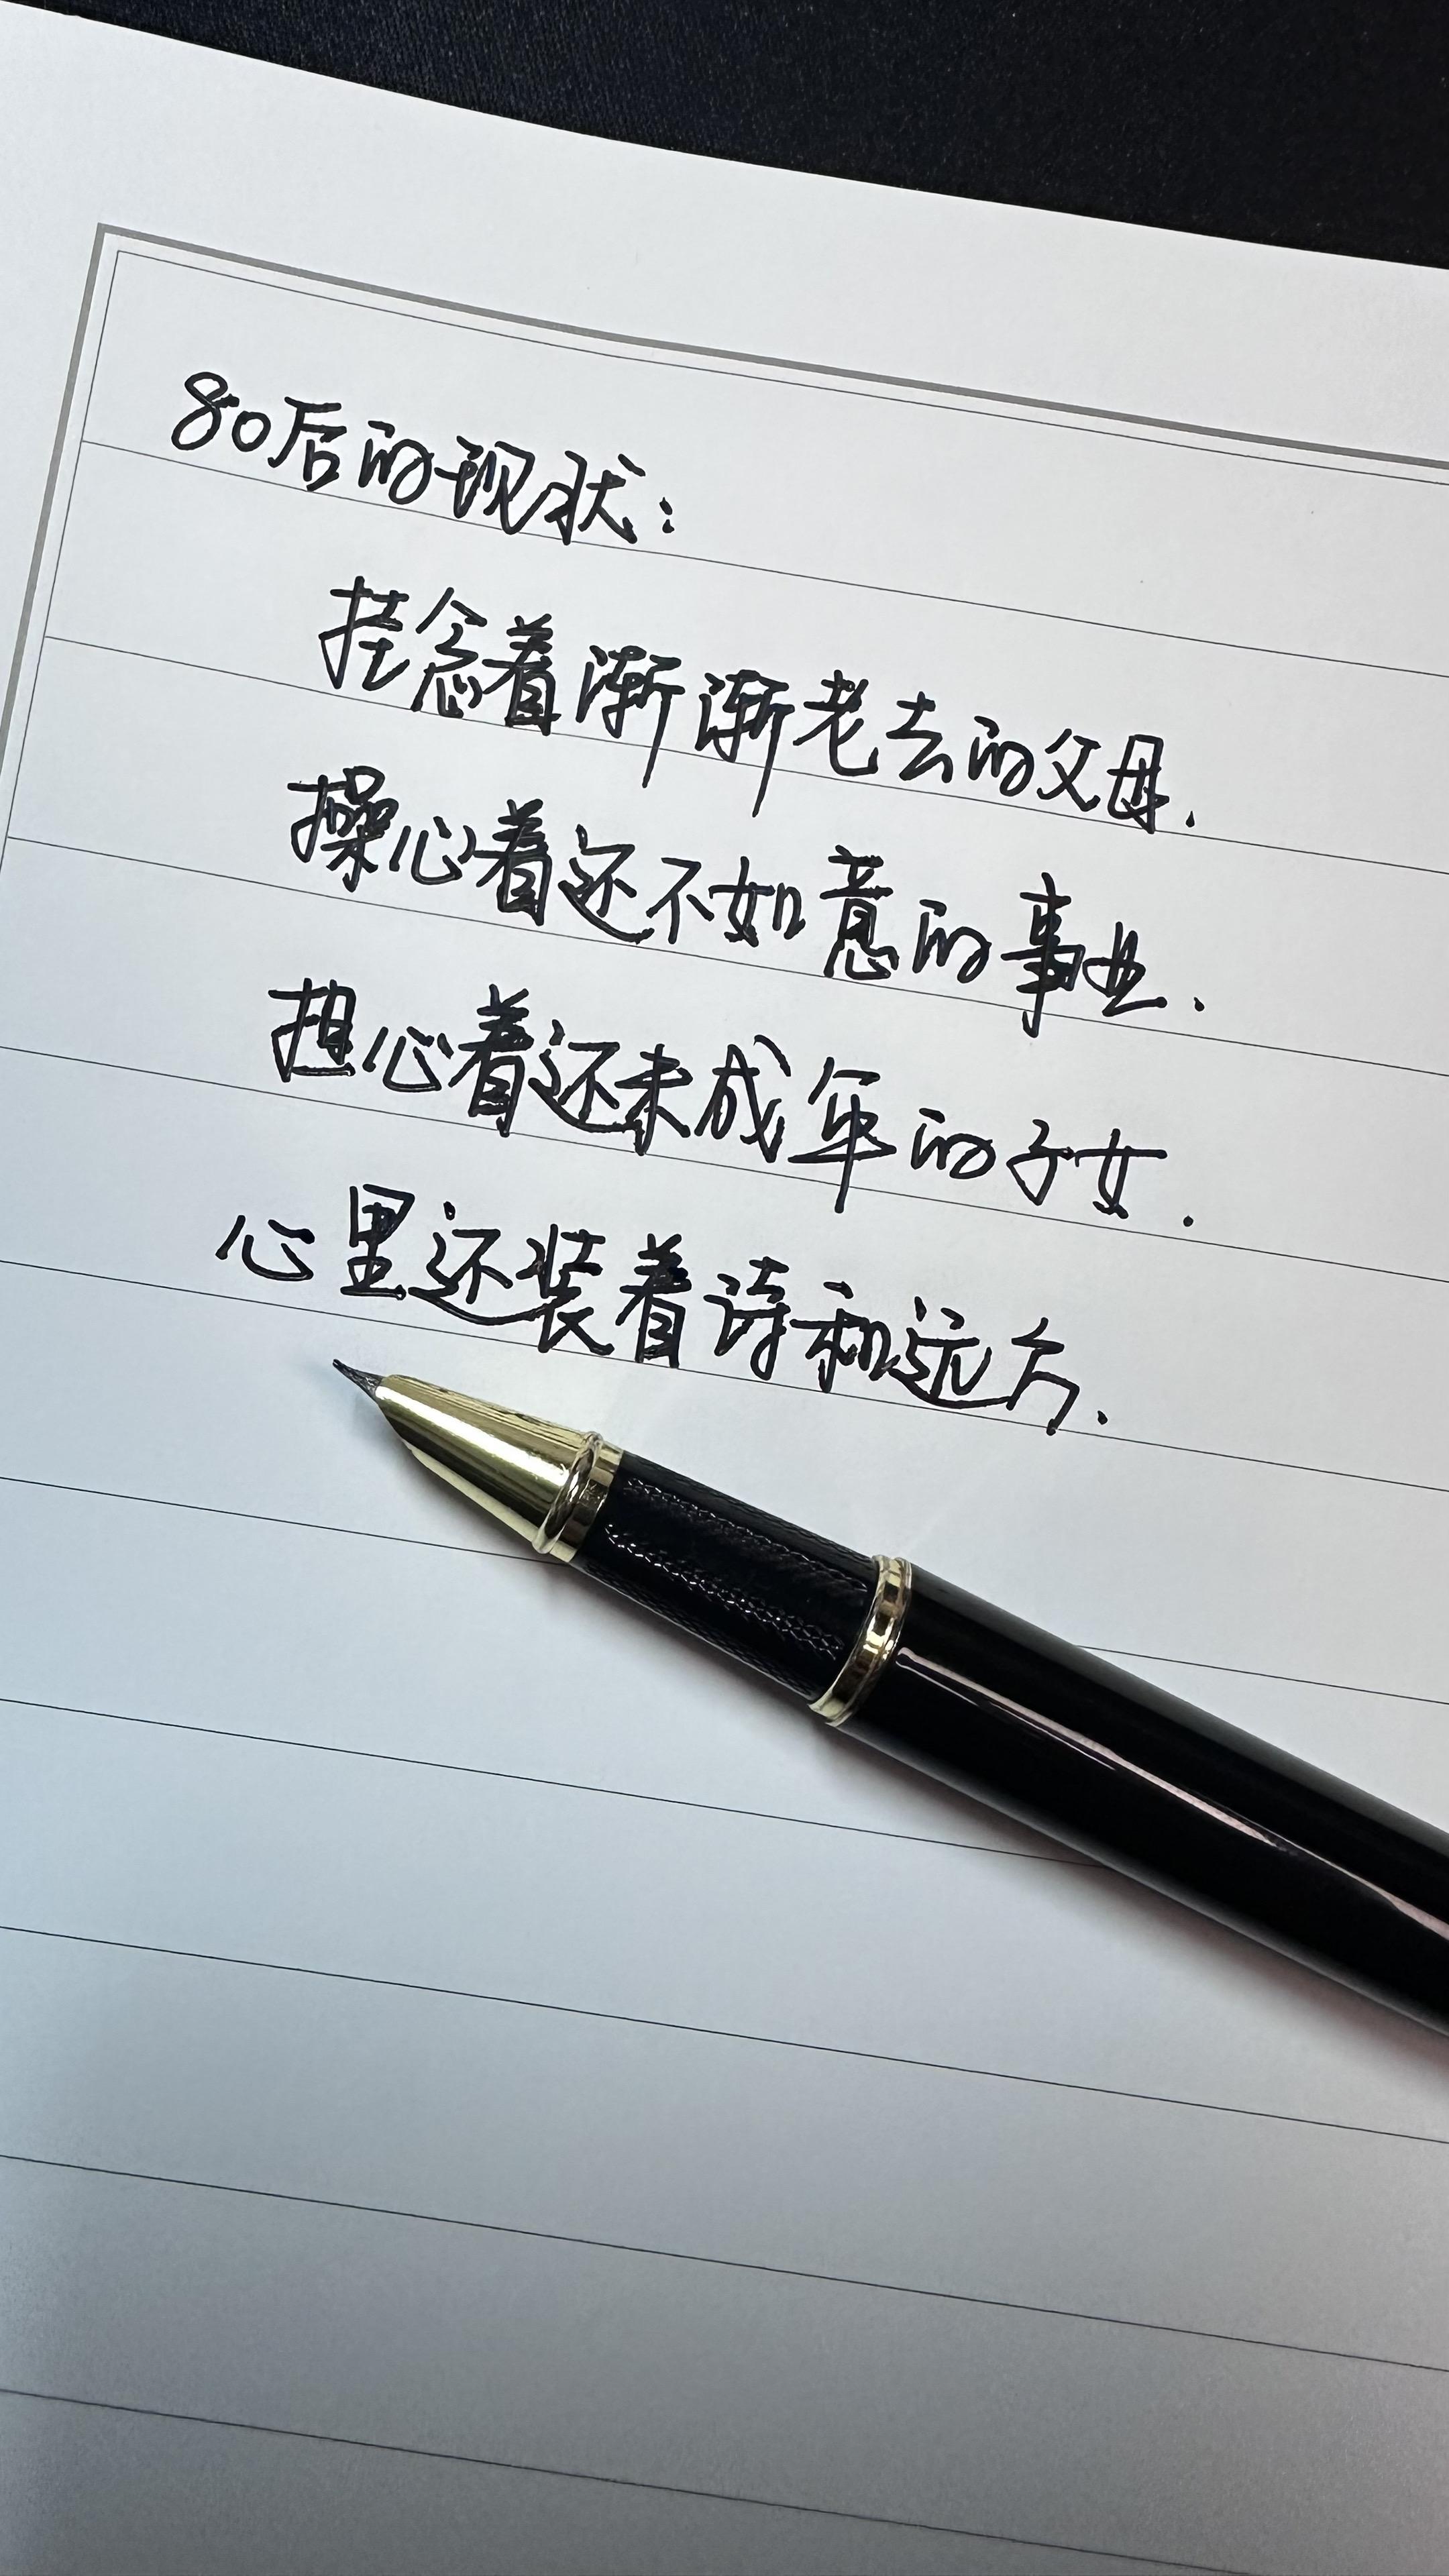 80后的现状：
挂念着渐渐老去的父母.
操心着还不如意的事业.
担心着还未成年的子女.
心里还装着诗和远方.